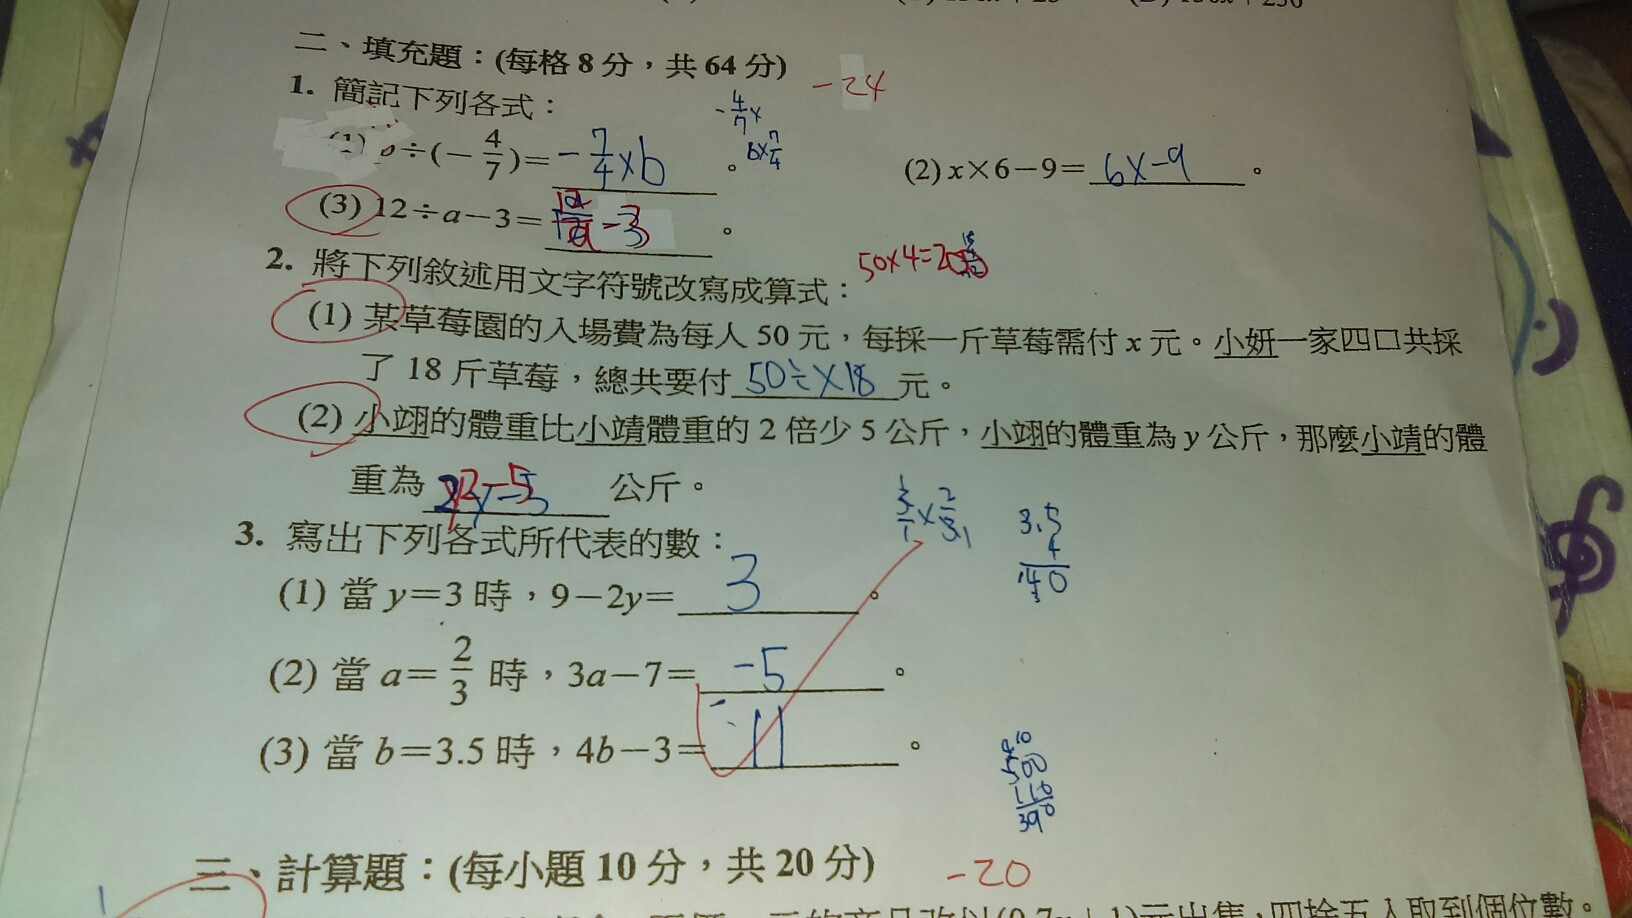 二、填充題：(每格 8 分，共 64 分)
-24
1. 簡記下列各式：
(1) b÷(−4/7)= -7/4×b 。
-4/7×
b×7/4
(2) x×6−9= 6x-9 。
(3) 12÷a−3= -3 。
2. 將下列敘述用文字符號改寫成算式：
50×4=200
(1) 某草莓園的入場費為每人 50 元，每採一斤草莓需付 x 元。小妍一家四口共採
了 18 斤草莓，總共要付 50÷×18 元。
(2) 小翊的體重比小靖體重的 2 倍少 5 公斤，小翊的體重為 y 公斤，那麼小靖的體
重為 公斤。
3. 寫出下列各式所代表的數：
3.5
4
140
(1) 當 y=3 時，9−2y= 3 。
(2) 當 a=2/3 時，3a−7= -5 。
(3) 當 b=3.5 時，4b−3= 11 。
三、計算題：(每小題 10 分，共 20 分)
-20
元出售，四捨五入取到個位數。